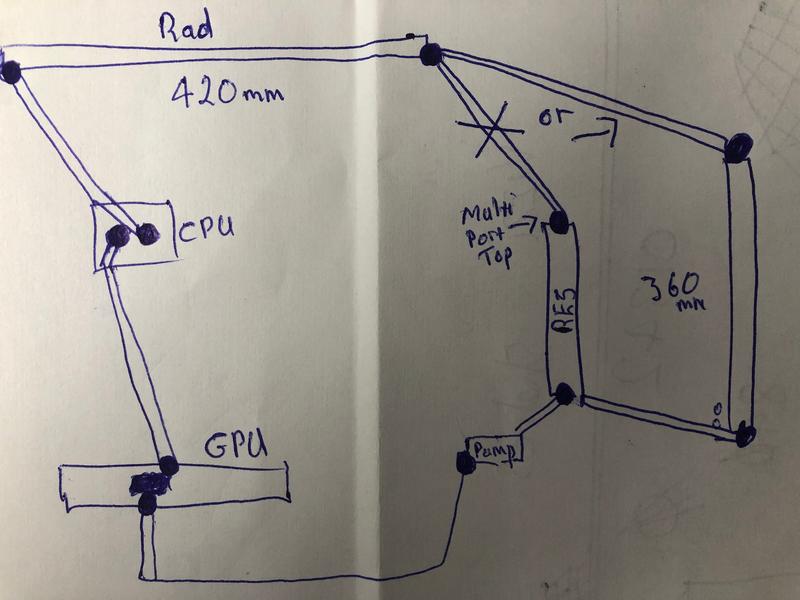 Rad
420mm
or
CPU
Multi
Port
Top
RES
360
mm
GPU
Pump